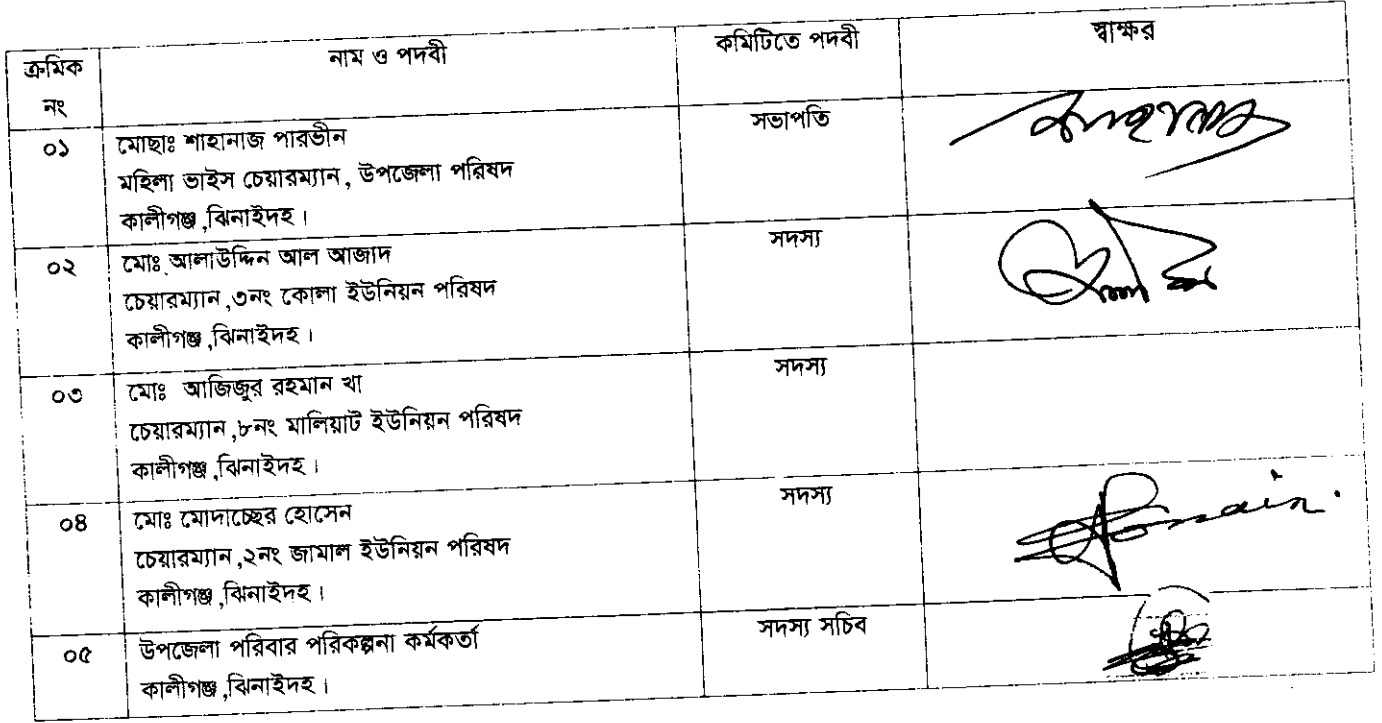 ক্রমিক নং	নাম ও পদবী	কমিটিতে পদবী	স্বাক্ষর
০১	মোছাঃ শাহানাজ পারভীন	সভাপতি
মহিলা ভাইস চেয়ারম্যান, উপজেলা পরিষদ
কালীগঞ্জ ,ঝিনাইদহ ।
০২	মোঃ আলাউদ্দিন আল আজাদ	সদস্য
চেয়ারম্যান ,৩নং কোলা ইউনিয়ন পরিষদ
কালীগঞ্জ ,ঝিনাইদহ ।
০৩	মোঃ আজিজুর রহমান খা	সদস্য
চেয়ারম্যান ,৮নং মালিয়াট ইউনিয়ন পরিষদ
কালীগঞ্জ ,ঝিনাইদহ ।
০৪	মোঃ মোদাচ্ছের হোসেন	সদস্য
চেয়ারম্যান ,২নং জামাল ইউনিয়ন পরিষদ
কালীগঞ্জ ,ঝিনাইদহ ।
০৫	উপজেলা পরিবার পরিকল্পনা কর্মকর্তা	সদস্য সচিব
কালীগঞ্জ ,ঝিনাইদহ ।